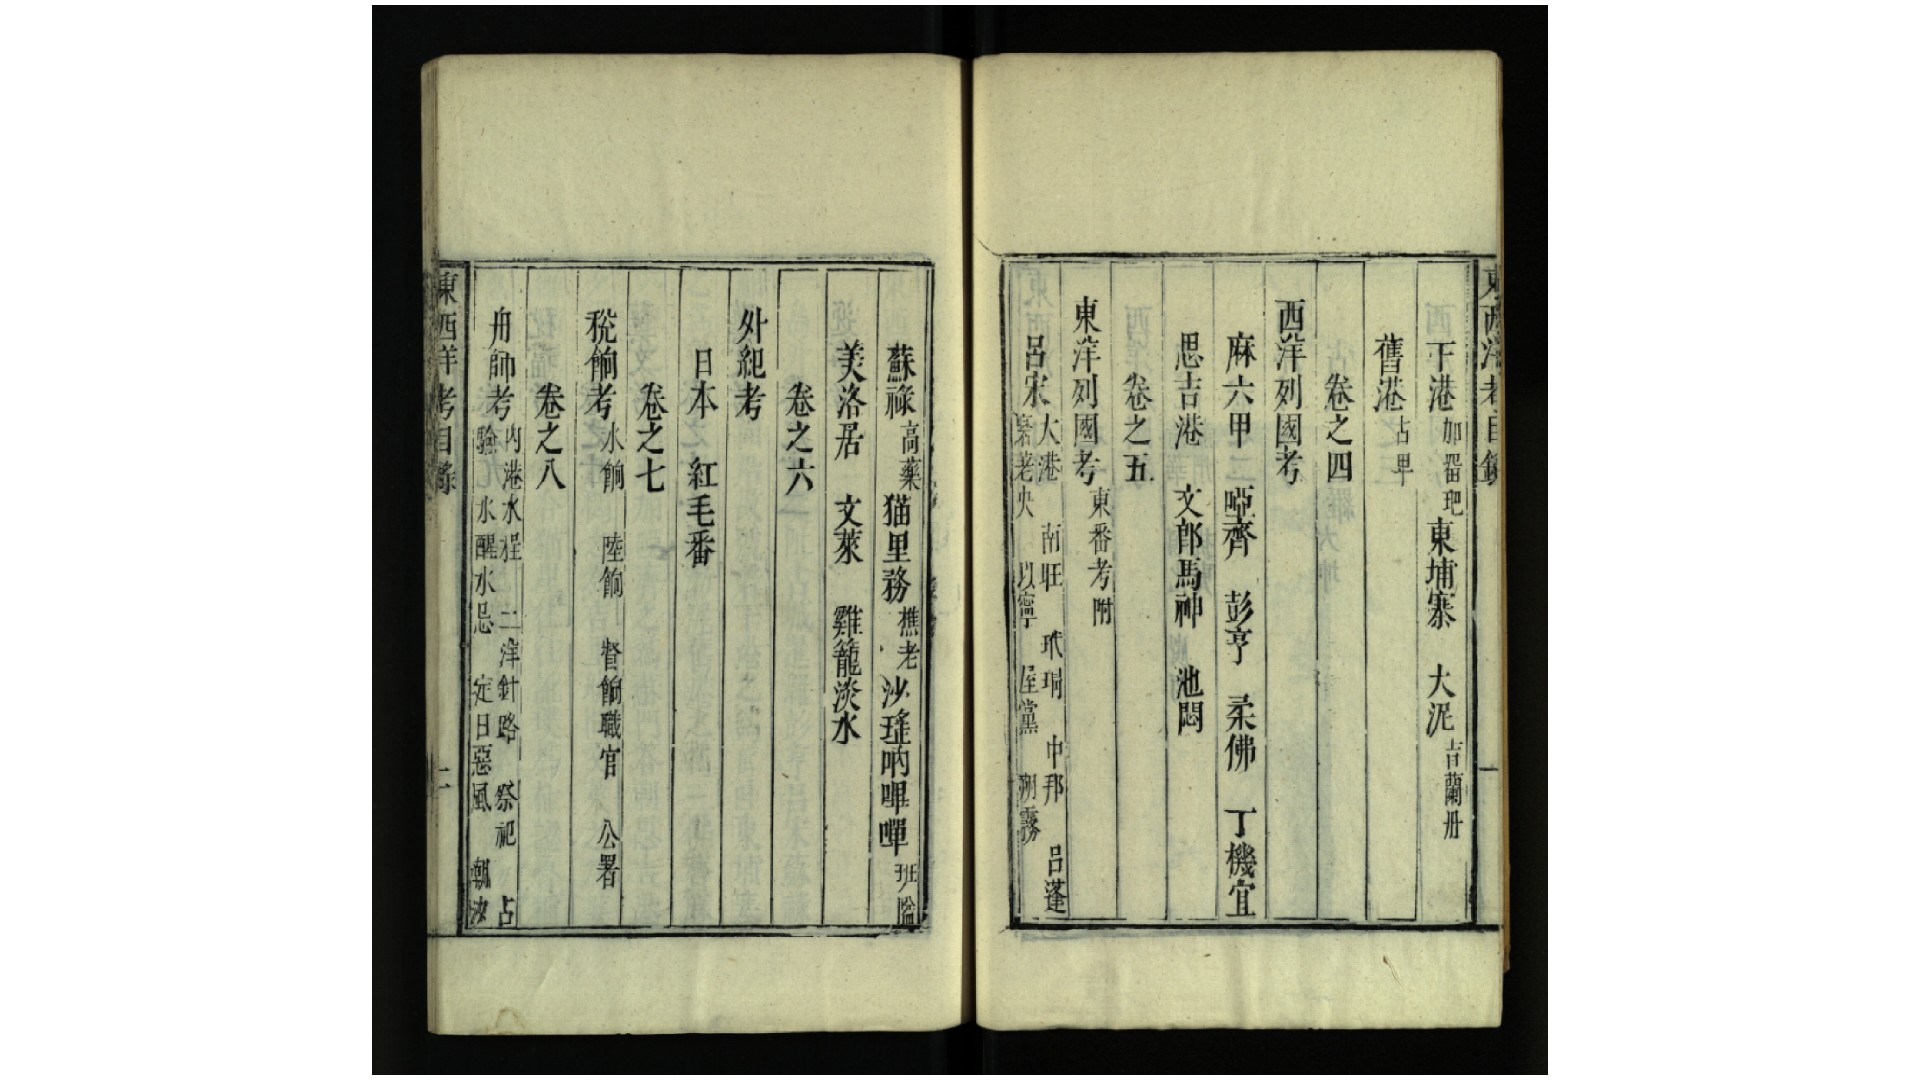 東西洋考目錄
一
下港 加留𠯈 東埔寨 大泥 吉蘭丹
舊港 占卑
卷之四
西洋列國考
麻六甲 啞齊 彭亨 柔佛 丁機宜
思吉港 文郎馬神 池悶
卷之五
東洋列國考 東番考附
呂宋 大港 南旺 玳瑁 中邦 呂蓬
以寧 屋黨 朔霧
蘇祿 高藥 猫里務 樵老 沙瑤吶嗶嘽 班隘
美洛居 文萊 雞籠淡水
卷之六
外紀考
日本 紅毛番
卷之七
稅餉考 水餉 陸餉 督餉職官 公署
卷之八
舟師考 內港水程 二洋針路 祭祀 占
驗 水醒水忌 定日惡風 潮汐
東西洋考目錄
二